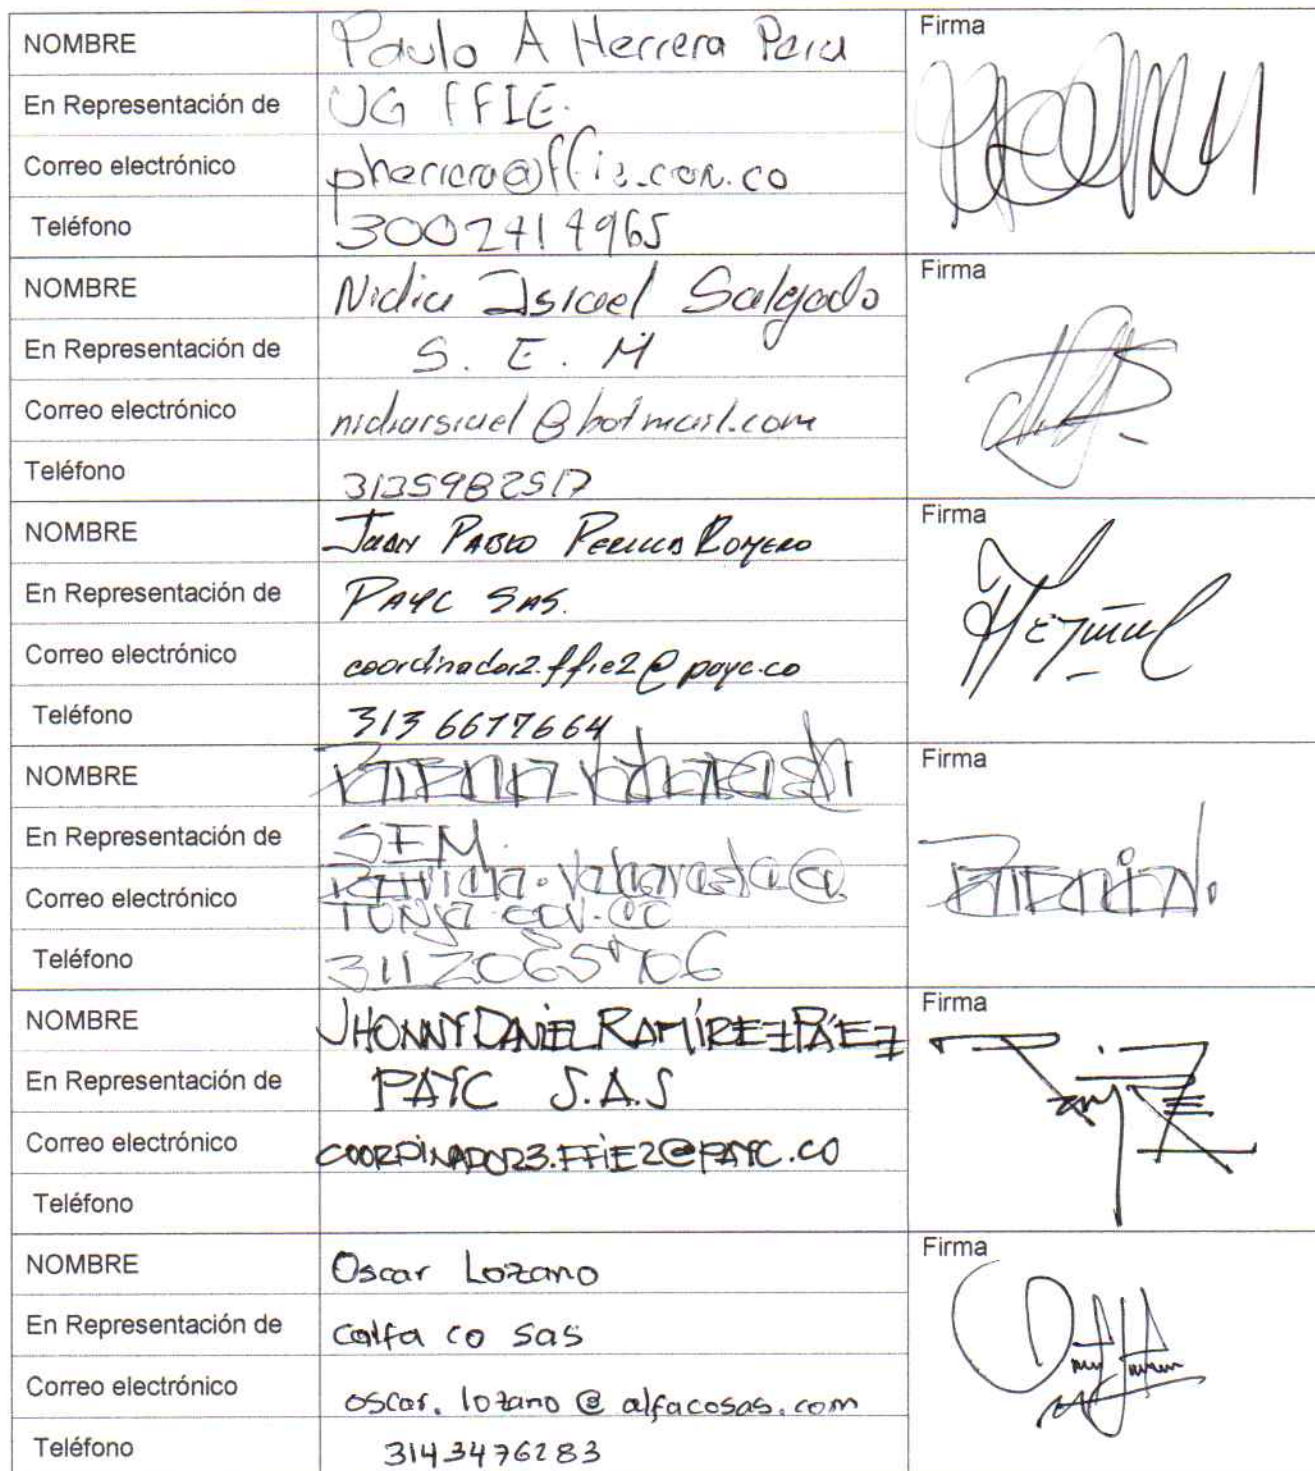 NOMBRE Paulo A Herrera Firma
En Representación de UG FFIE.
Correo electrónico pherrera@ffie.com.co
Teléfono 3002414965
NOMBRE Nidia Israel Salgado Firma
En Representación de S. E. M
Correo electrónico nidiaisrael@hotmail.com
Teléfono 3135982517
NOMBRE Juan Pablo Romero Firma
En Representación de PAYC SAS.
Correo electrónico coordinador2.ffie2@payc.co
Teléfono 313 6677664
NOMBRE Firma
En Representación de SEM.
Correo electrónico
TUNJA.GOV.CO
Teléfono 3112065706
NOMBRE JHONNY DANIEL RAMÍREZ PÁEZ Firma
En Representación de PAYC S.A.S
Correo electrónico COORDINADOR3.FFiE2@PAYC.CO
Teléfono
NOMBRE Oscar Lozano Firma
En Representación de calfa co sas
Correo electrónico oscar.lozano@alfacosas.com
Teléfono 3143476283